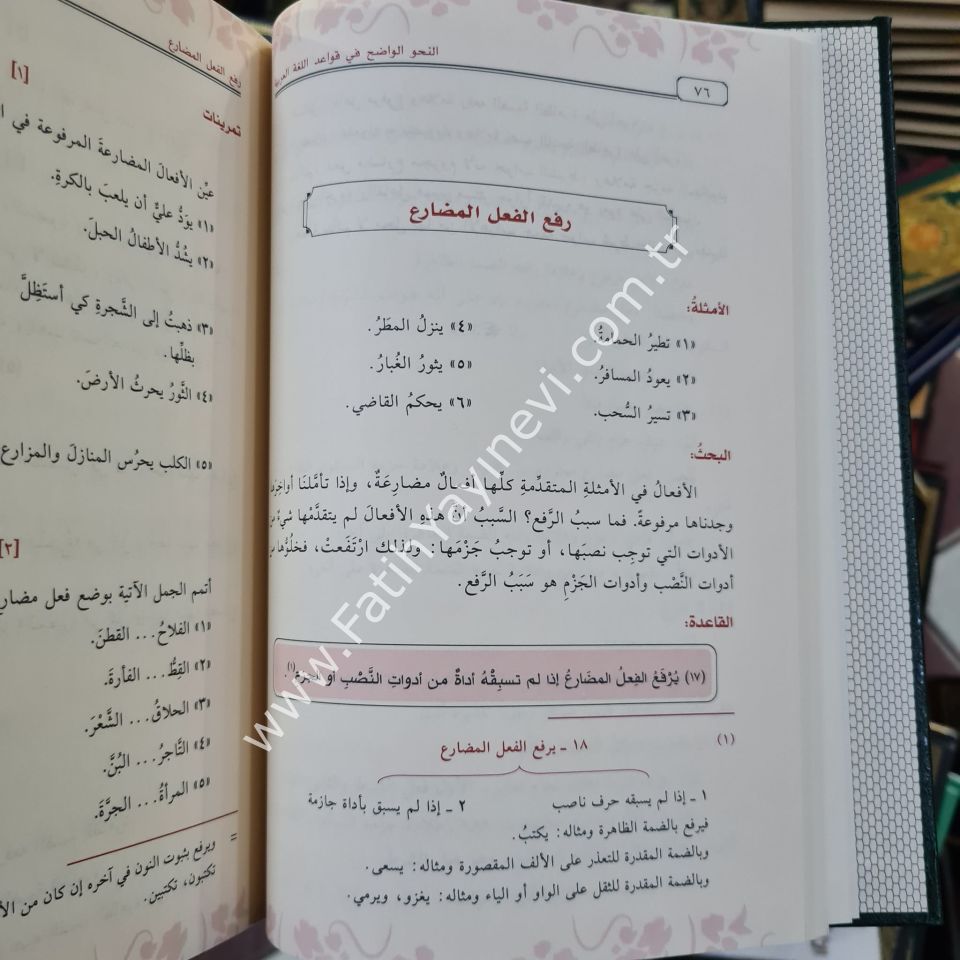 ٧٦
النحو الواضح في قواعد اللغة
رفع الفعل المضارع
الأمثلةُ:
«١» تطيرُ الحمامةُ.
«٢» يعودُ المسافرُ.
«٣» تسيرُ السُّحب.
«٤» ينزلُ المطَرُ.
«٥» يثورُ الغُبارُ.
«٦» يحكمُ القاضي.
البحثُ:
الأفعالُ في الأمثلةِ المتقدِّمةِ كلّها أفعالٌ مضارِعَةٌ، وإذا تأمَّلنَا أواخِرَ
وجدناها مرفوعةً. فما سببُ الرَّفع؟ السَّببُ أنَّ هذه الأفعالَ لم يتقدَّمْها
الأدوات التي توجِب نصبَها، أو توجبُ جَزْمَها: ولذلك ارْتَفَعتْ،
أدوات النَّصْب وأدوات الجَزْمِ هو سَبَبُ الرَّفع.
القاعدة:
(١٧) يُرْفَعُ الفِعلُ المضارعُ إذا لم تسبِقْهُ أداةٌ من أدواتِ النَّصْبِ أو (١).
(١)
١٨ ـ يرفع الفعل المضارع
١ ـ إذا لم يسبقه حرف ناصب
٢ ـ إذا لم يسبق بأداة جازمة
فيرفع بالضمة الظاهرة ومثاله: يكتبُ.
وبالضمة المقدرة للتعذر على الألف المقصورة ومثاله: يسعى.
وبالضمة المقدرة للثقل على الواو أو الياء ومثاله: يغزو، ويرمي.
رفع الفعل المضارع
[١]
تمرينات
عيِّن الأفعالَ المضارعةَ المرفوعة في
«١» يوَدُّ عليٌّ أن يلعبَ بالكرةِ.
«٢» يشُدُّ الأطفالُ الحبلَ.
«٣» ذهبتُ إلى الشَّجرةِ كي أستَظِلَّ
بظلِّها.
«٤» الثَّورُ يحرثُ الأرضَ.
«٥» الكلب يحرُس المنازلَ والمزارع
[٢]
أتمم الجمل الآتية بوضع فعل
«١» الفلاحُ... القطنَ.
«٢» القِطُّ... الفأرةَ.
«٣» الحلاقُ... الشَّعْرَ.
«٤» التَّاجرُ... البُنَّ.
«٥» المرأةُ... الجرَّةَ.
=
ويرفع بثبوت النون في آخره إن كان من
تكتبون، تكتبين.
www.FatihYayinevi.com.tr